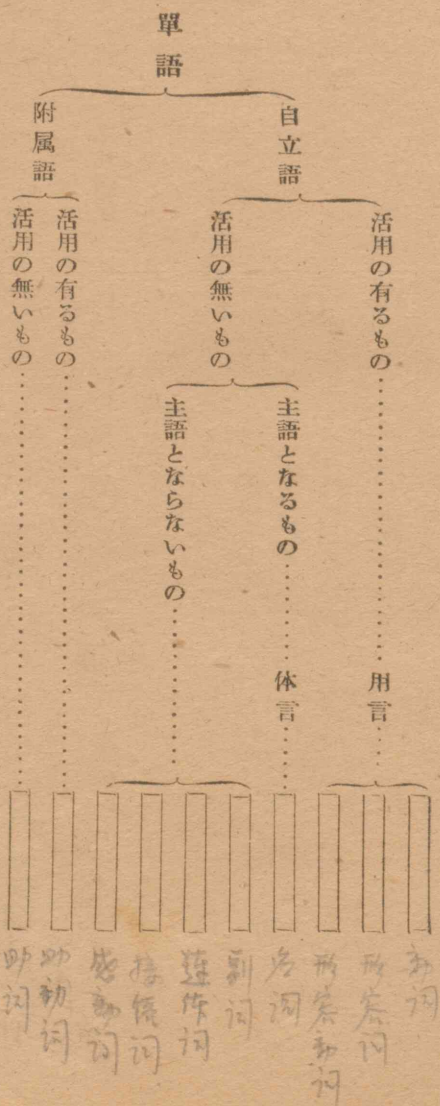 單語
自立語
活用の有るもの
用言
活用の無いもの
主語となるもの
体言
主語とならないもの
附属語
活用の有るもの
活用の無いもの
動詞
形容詞
形容動詞
名詞
副詞
連体詞
接続詞
感動詞
助動詞
助詞